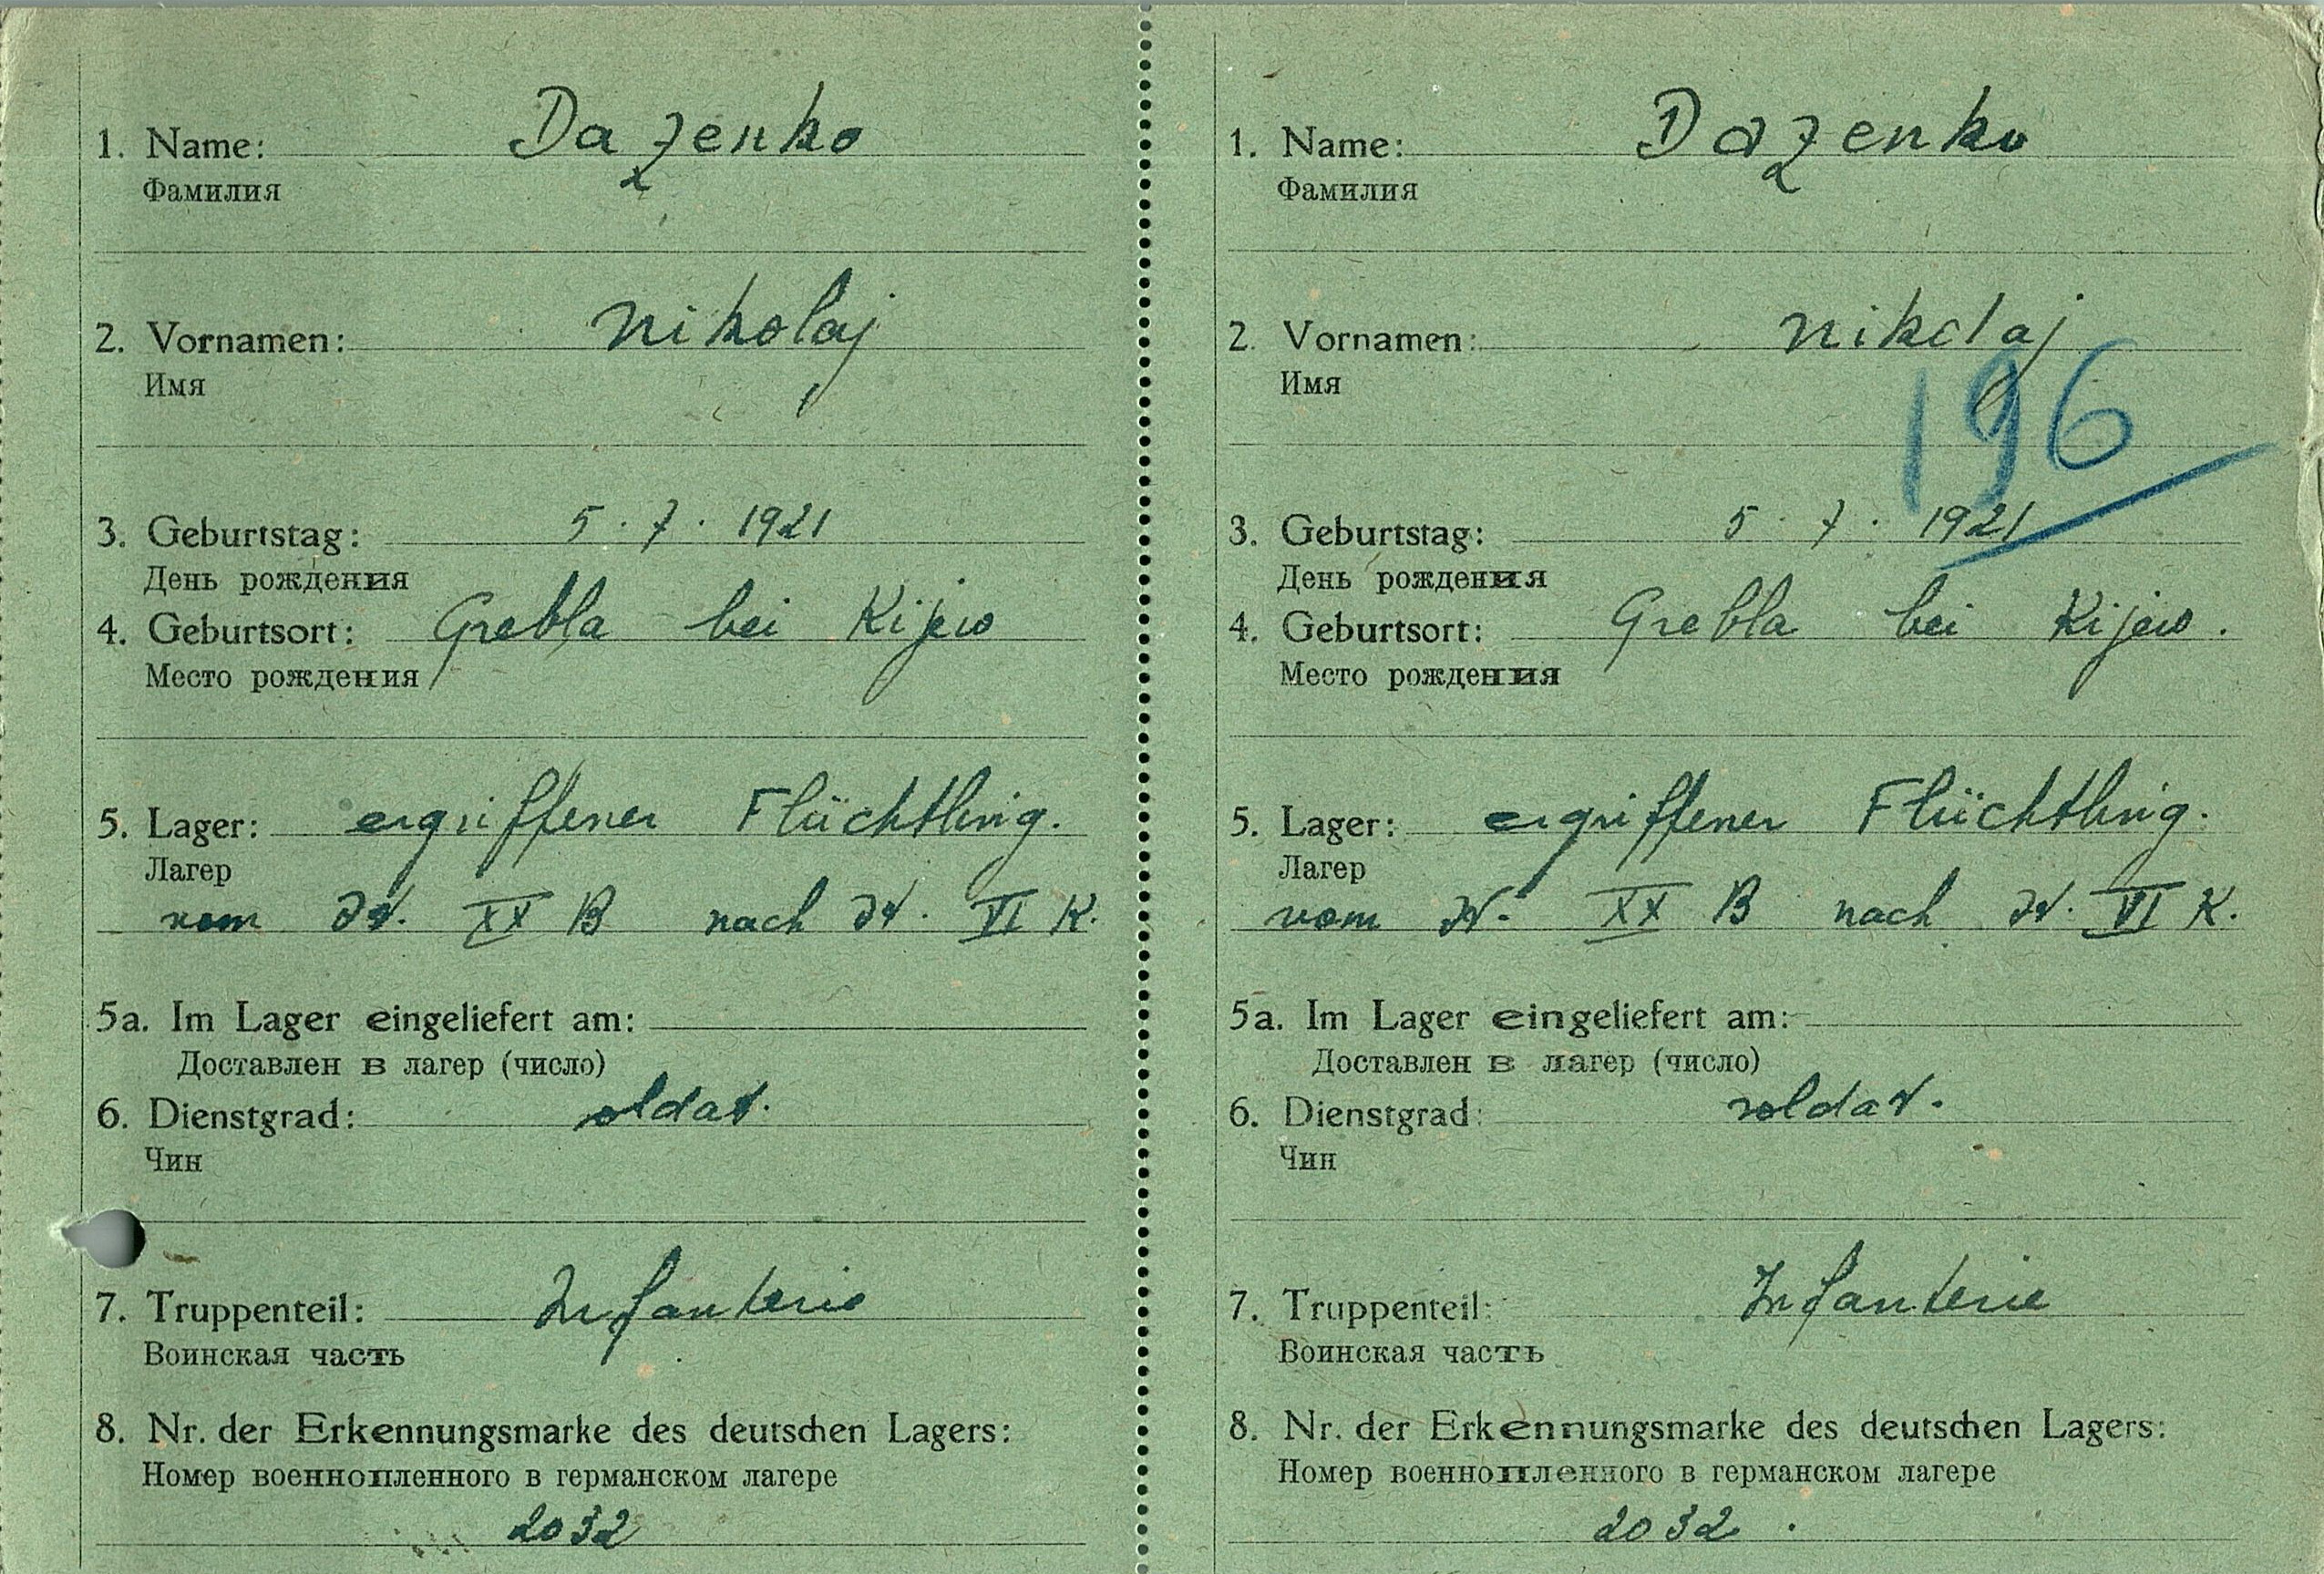 1. Name: Dazenko
Фамилия
2. Vornamen: Nikolaj
Имя
3. Geburtstag: 5. 7. 1921
День рождения
4. Geburtsort: Grebla bei Kijew
Место рождения
5. Lager: ergriffener Flüchtling.
Лагер
vom St. XX B nach St. VI K.
5a. Im Lager eingeliefert am:
Доставлен в лагер (число)
6. Dienstgrad: soldat.
Чин
7. Truppenteil: Infanterie
Воинская часть
8. Nr. der Erkennungsmarke des deutschen Lagers:
Номер военнопленного в германском лагере
2032
1. Name: Dazenko
Фамилия
2. Vornamen: Nikolaj
Имя
196
3. Geburtstag: 5. 7. 1921
День рождения
4. Geburtsort: Grebla bei Kijew.
Место рождения
5. Lager: ergriffener Flüchtling.
Лагер
vom St. XX B nach St. VI K.
5a. Im Lager eingeliefert am:
Доставлен в лагер (число)
6. Dienstgrad: soldat.
Чин
7. Truppenteil: Infanterie
Воинская часть
8. Nr. der Erkennungsmarke des deutschen Lagers:
Номер военнопленного в германском лагере
2032.